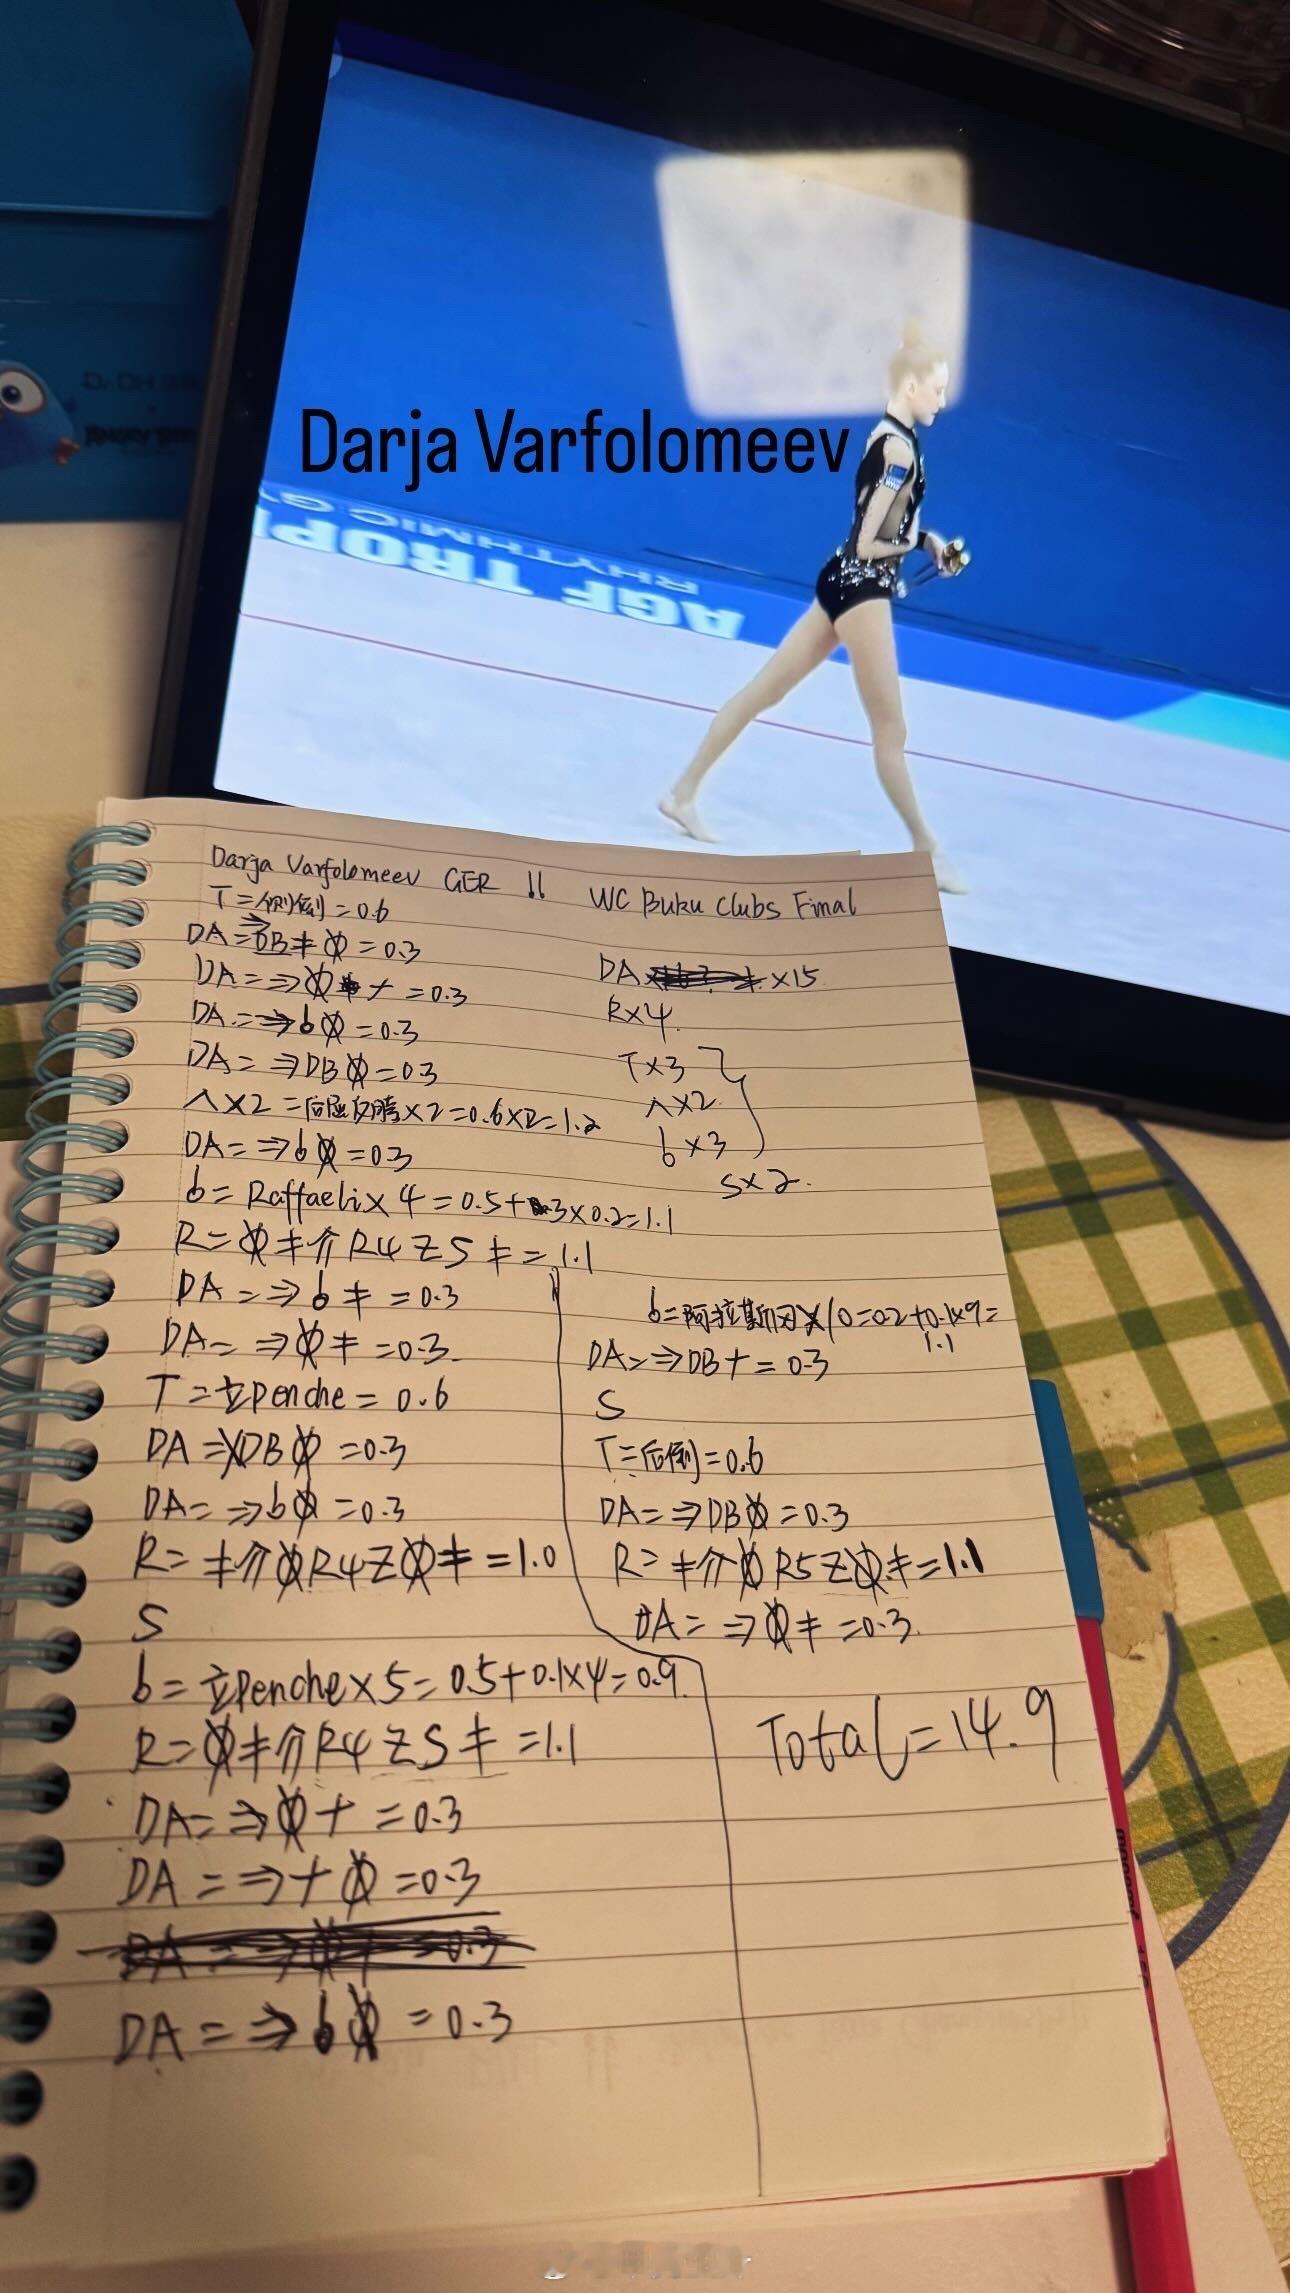 Darja Varfolomeev
AGF TROP
RHYTHMIC GY
Darja Varfolomeev GER WC Buku Clubs Final
T=侧倒=0.6
DA=⇒DB≠ =0.3
DA=⇒ + =0.3
DA=⇒b =0.3
DA=⇒DB =0.3
∧×2=后屈反腾×2=0.6×2=1.2
DA=⇒b =0.3
b=Raffaeli×4=0.5+3×0.2=1.1
R= ≠ R4 Z S ≠=1.1
DA=⇒b≠=0.3
DA=⇒ ≠=0.3
T=立penche=0.6
DA= DB =0.3
DA=⇒b =0.3
R=≠ R4 Z ≠=1.0
S
b=立penche×5=0.5+0.1×4=0.9
R= ≠ R4 Z S ≠=1.1
DA=⇒ +=0.3
DA=⇒+ =0.3
DA=⇒b =0.3
DA ×15
R×4
T×3
∧×2
b×3
S×2
b=阿拉斯加×10=0.2+0.1×9=
1.1
DA=⇒DB+=0.3
S
T=后倒=0.6
DA=⇒DB =0.3
R=≠ R5 Z ≠=1.1
DA=⇒ ≠=0.3
Total=14.9